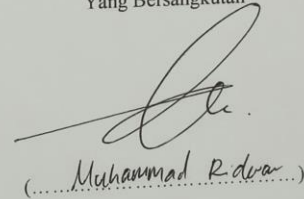 Yang Bersangkutan
(.... Muhammad Ridwan ....)